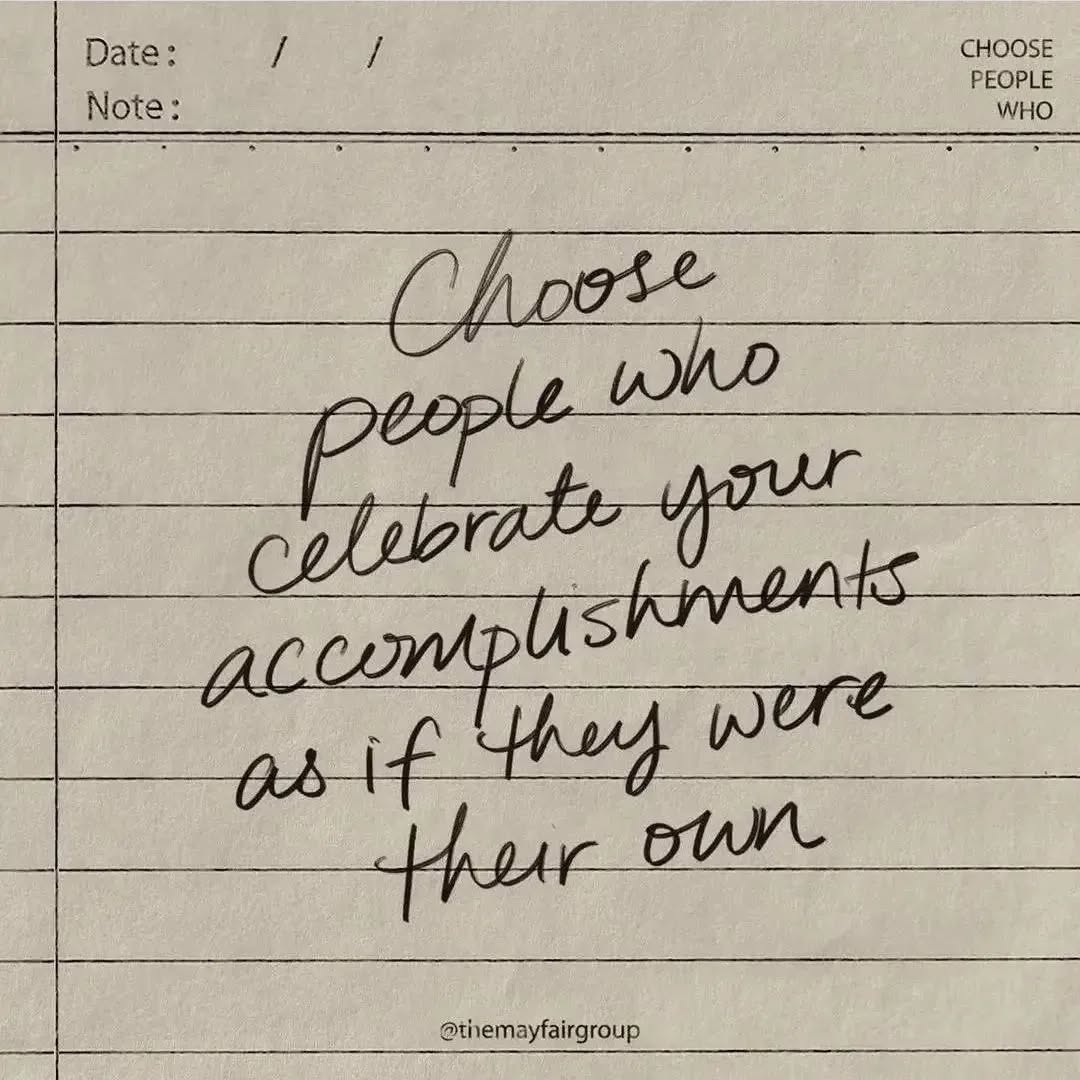 Date: / /
Note:
CHOOSE
PEOPLE
WHO
Choose
people who
celebrate your
accomplishments
as if they were
their own
@themayfairgroup